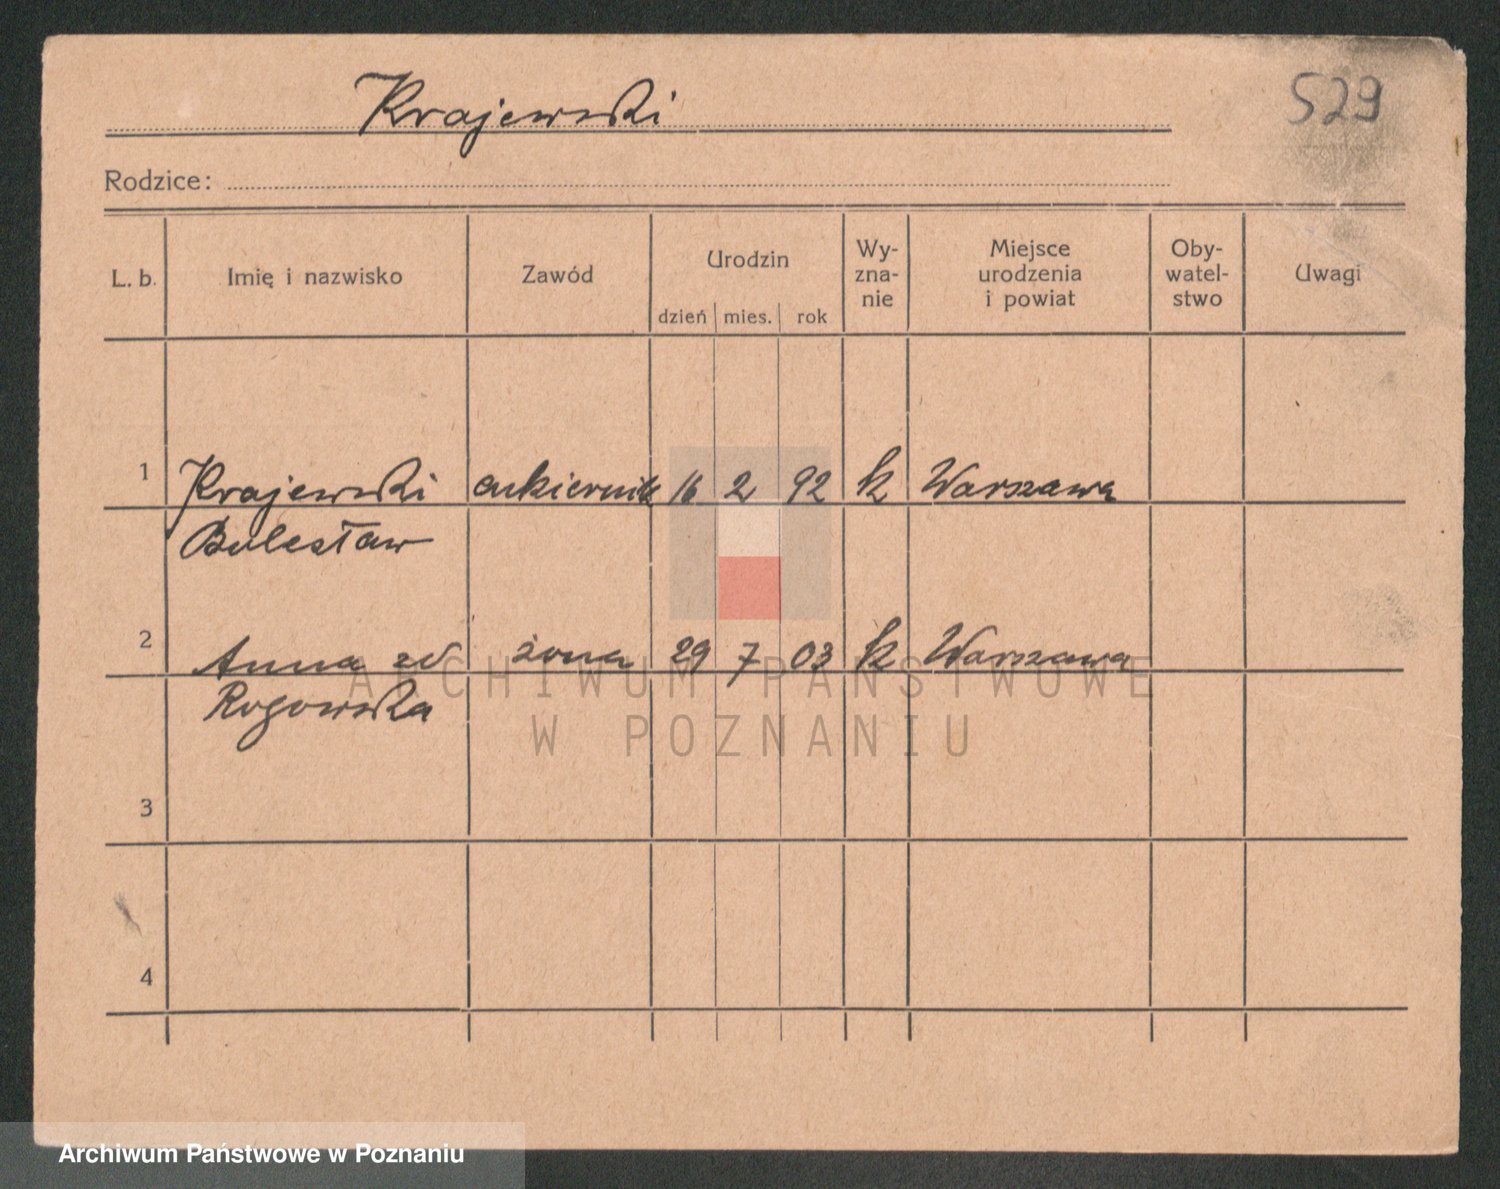 Krajewski
529
Rodzice:
L. b. Imię i nazwisko Zawód Urodzin dzień mies. rok Wy-zna-nie Miejsce urodzenia i powiat Oby-watel-stwo Uwagi
1 Krajewski cukiernik 16 2 92 k Warszawa
Bolesław
2 Anna zd żona 29 7 03 k Warszawa
Rogowska
ARCHIWUM PAŃSTWOWE
W POZNANIU
3
4
Archiwum Państwowe w Poznaniu